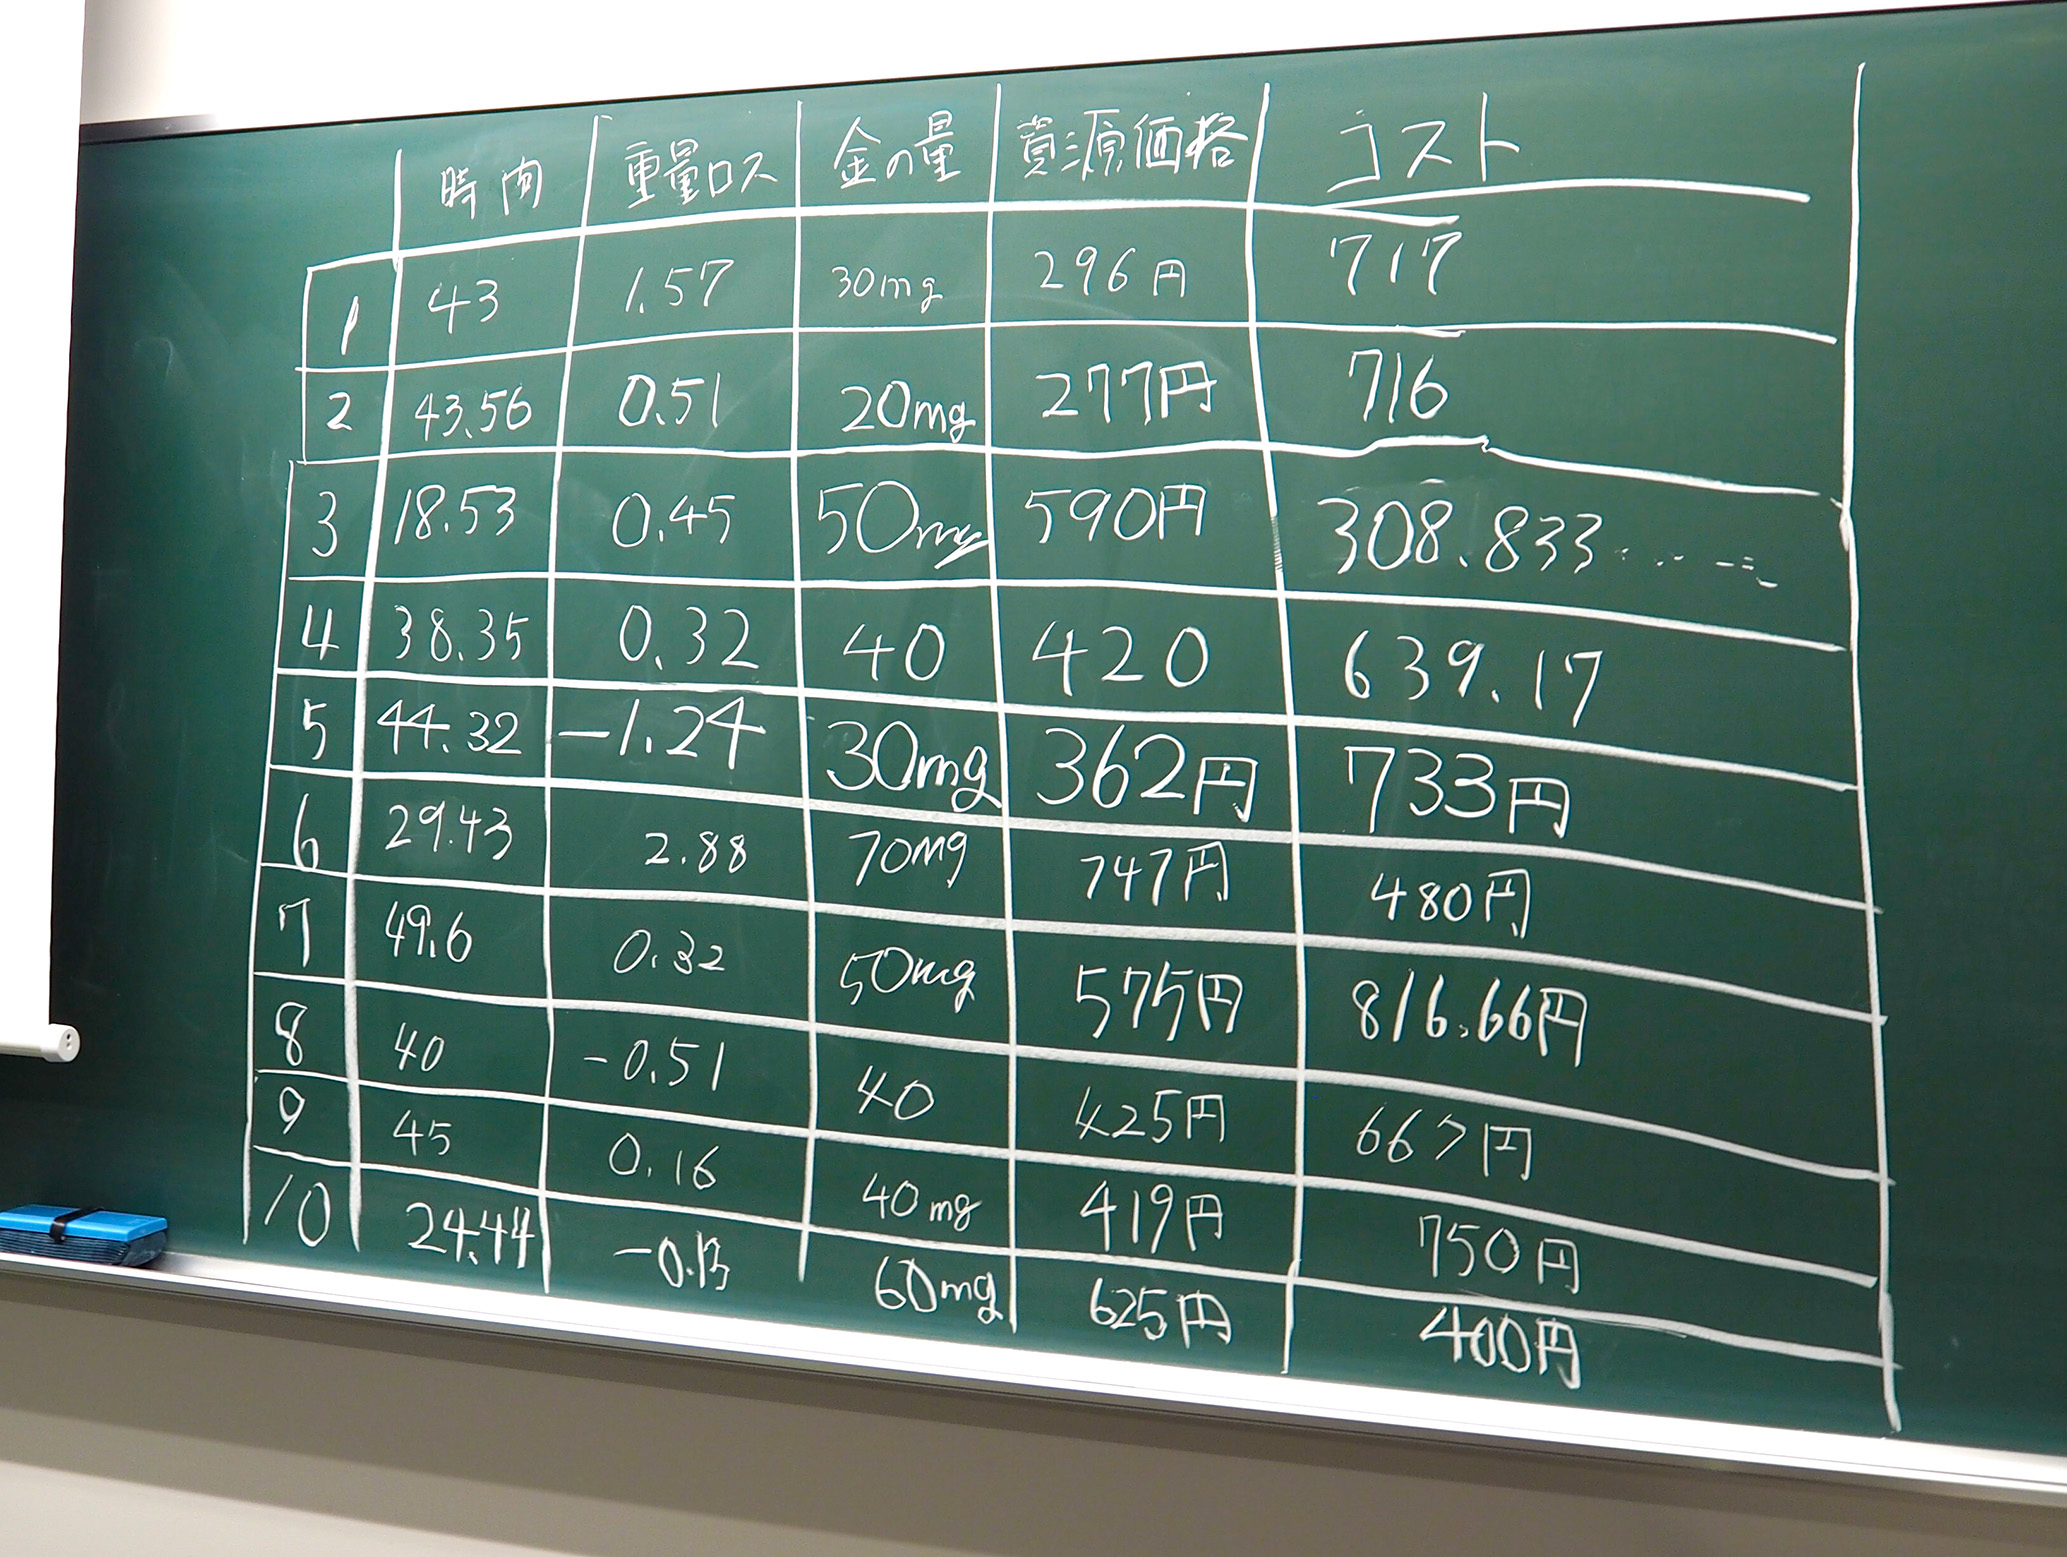 時間 重量ロス 金の量 資源価格 コスト
1 43 1.57 30mg 296円 717
2 43.56 0.51 20mg 277円 716
3 18.53 0.45 50mg 590円 308.833……
4 38.35 0.32 40 420 639.17
5 44.32 -1.24 30mg 362円 733円
6 29.43 2.88 70mg 747円 480円
7 49.6 0.32 50mg 575円 816.66円
8 40 -0.51 40 425円 667円
9 45 0.16 40mg 419円 750円
10 24.44 -0.13 60mg 625円 400円